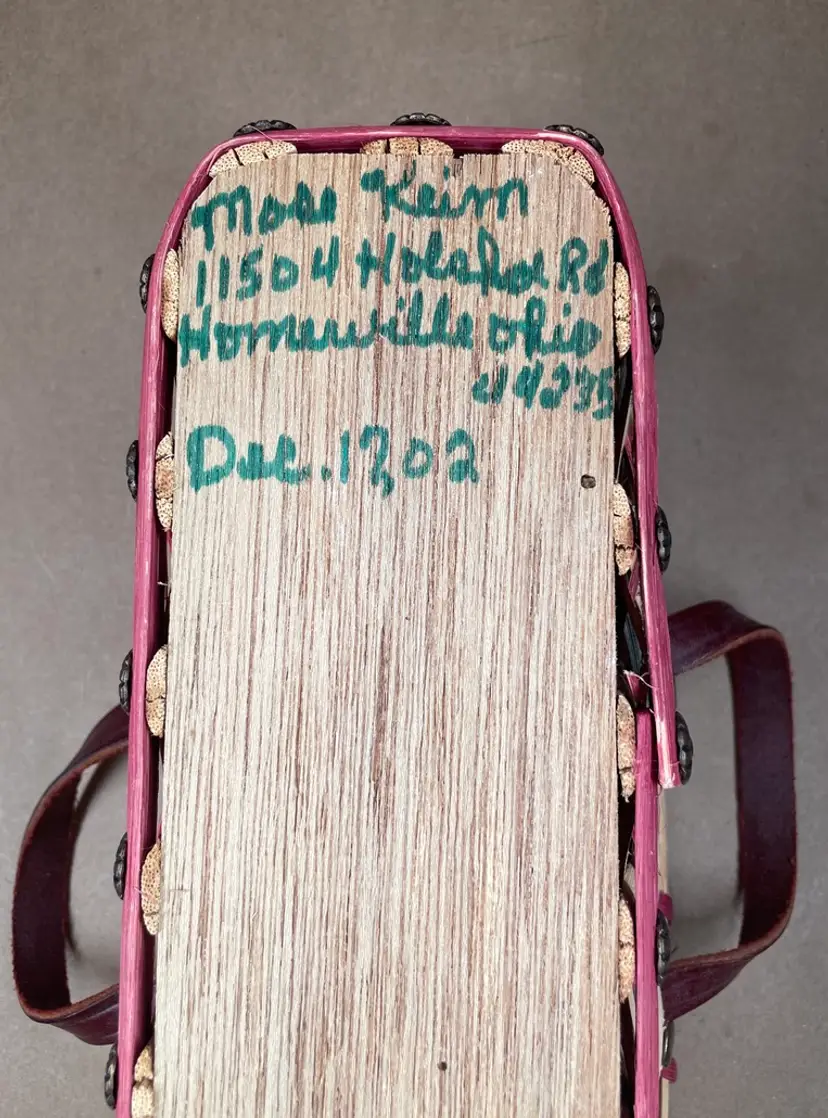 Mose Keim
11504 Rd
Homerville Ohio
44235
Dec. 17, 02